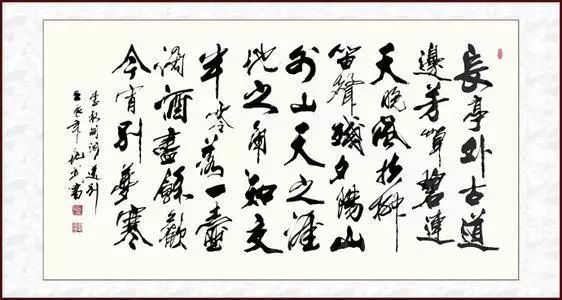 長亭外古道
邊芳草碧連
天晚風拂柳
笛聲殘夕陽山
外山天之涯
地之角知交
半零落一壺
濁酒盡餘歡
今宵别夢寒
李叔同詞送别
壬辰年書